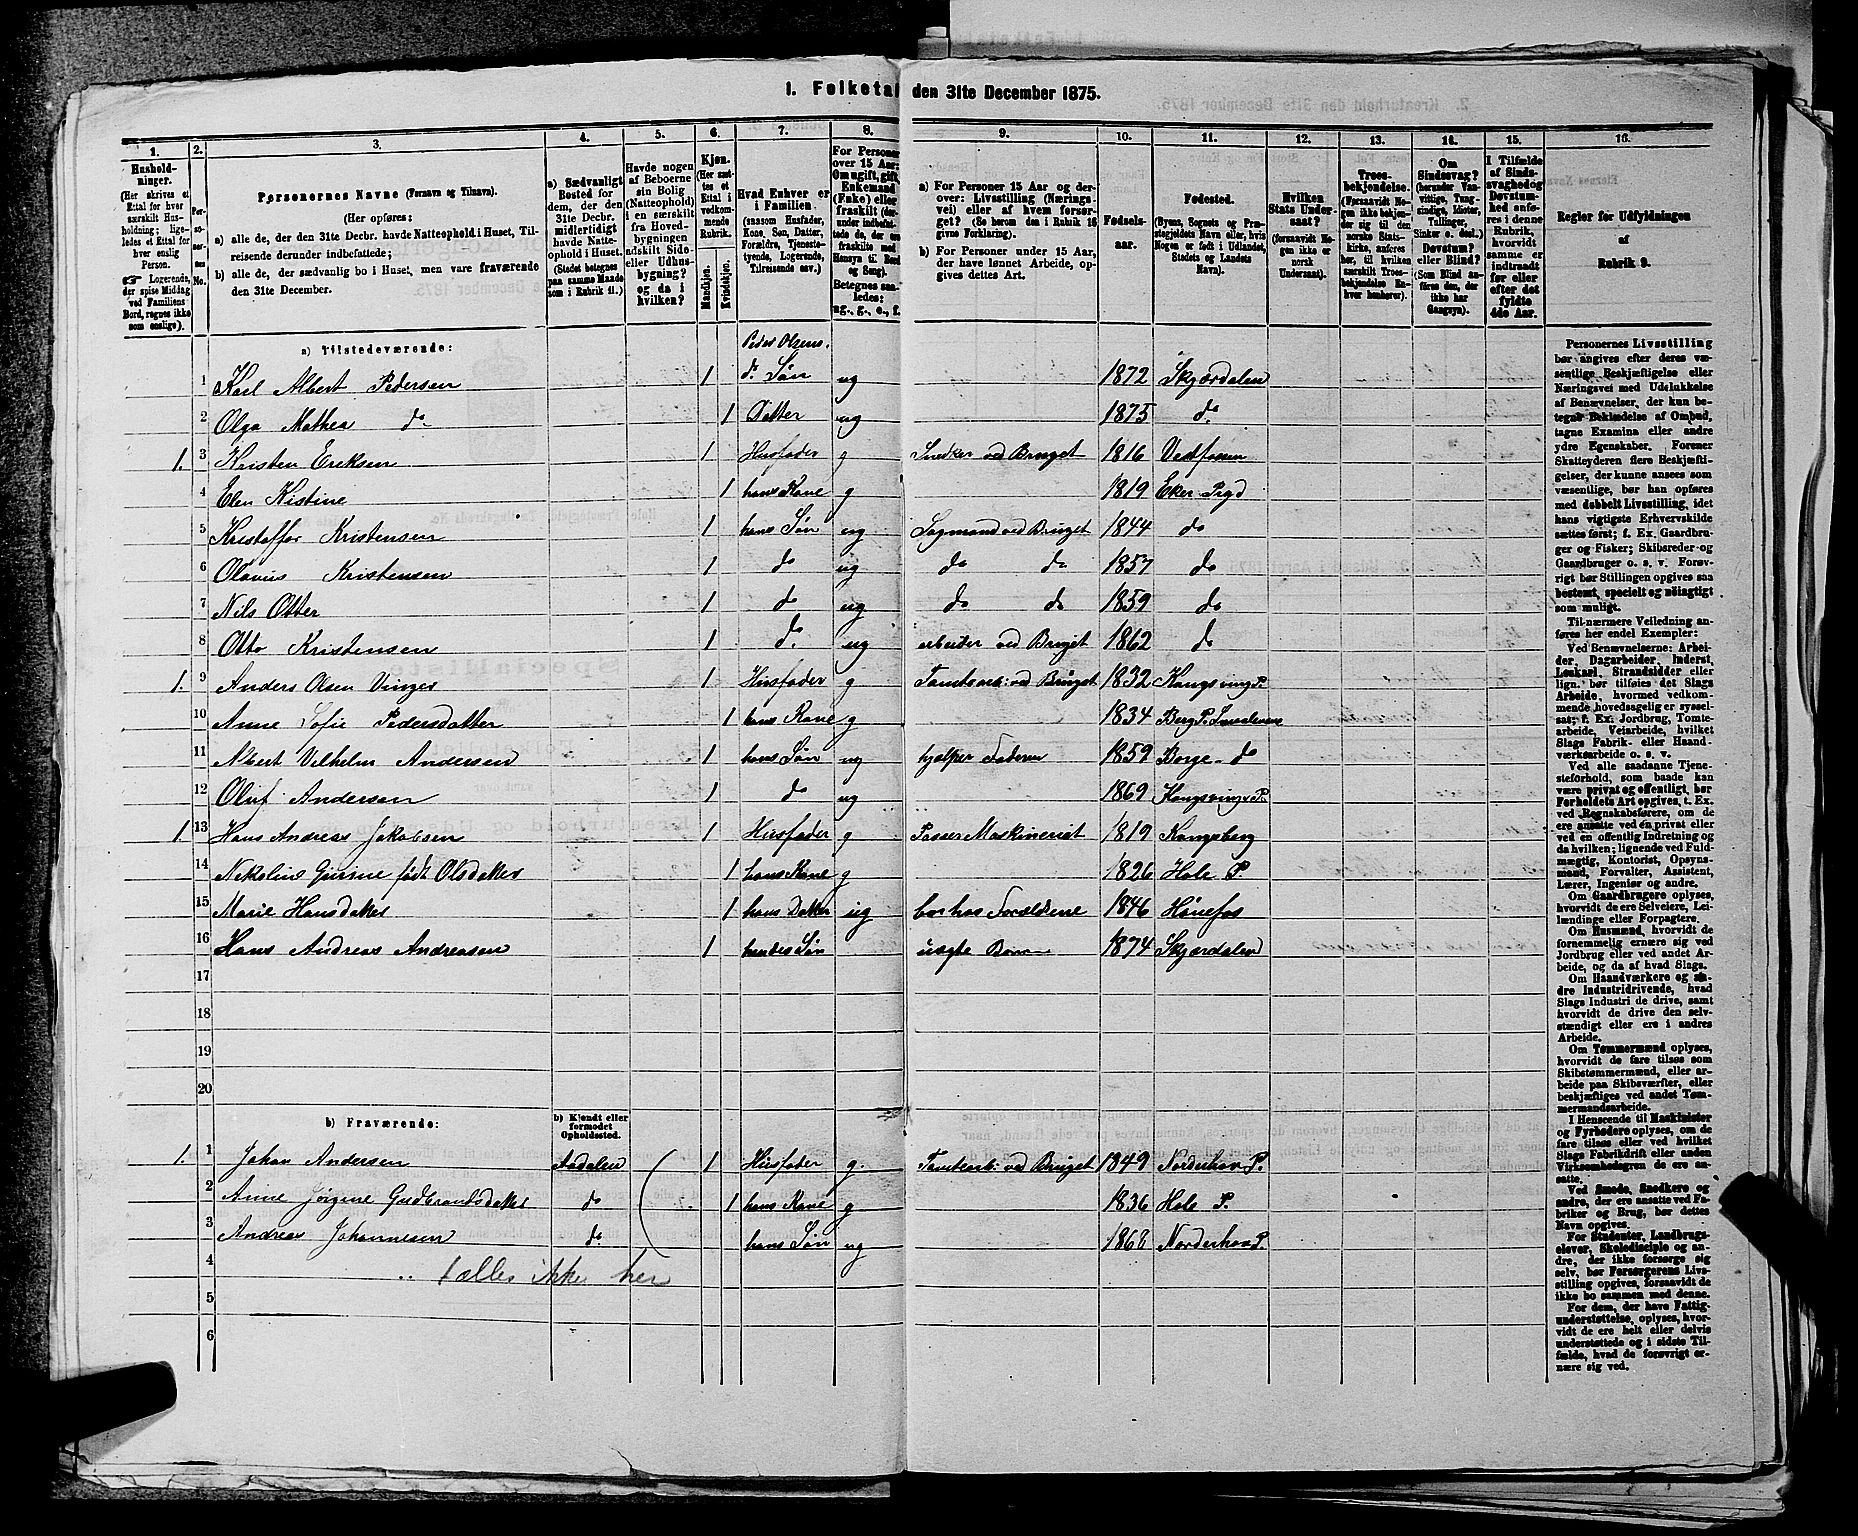 1. Folketal den 31te December 1875.
1. 2. 3. 4. 5. 6. 7. 8. 9. 10. 11. 12. 13. 14. 15. 16.
Husholdninger. (Her skrives et Ettal for hver særskilt Husholdning; ligeledes et Ettal for hver enslig Person. ☞ Logerende, der spise Middag ved Familiens Bord, regnes ikke som enslige).
Personernes No.
Personernes Navne (Fornavn og Tilnavn).
(Her opføres:
a) alle de, der den 31te Decbr. havde Natteophold i Huset, Tilreisende derunder indbefattede;
b) alle de, der sædvanlig bo i Huset, men vare fraværende den 31te December.
a) Sædvanligt Bosted for dem, der den 31te Decbr. midlertidigt havde Natteophold i Huset. (Stedet betegnes paa samme Maade som i Rubrik 11.)
Havde nogen af Beboerne sin Bolig (Natteophold) i en særskilt fra Hovedbygningen adskilt Side- eller Udhusbygning? og da i hvilken?
Kjøn. (Her sættes et Ettal i vedkommende Rubrik. Mandkjøn. Kvindekjøn.
Hvad Enhver er i Familien. (saasom Husfader, Kone, Søn, Datter, Forældre, Tjenestetyende, Logerende, Tilreisende osv.)
For Personer over 15 Aar: Om ugift, gift, Enkemand (Enke) eller fraskilt (derunder indbefattede de, der ere fraskilte med Hensyn til Bord og Sæng). Betegnes saaledes: ug., g., e., f.
a) For Personer 15 Aar og derover: Livsstilling (Næringsvei) eller af hvem forsørget? (Se herom den i Rubrik 16 givne Forklaring).
b) For Personer under 15 Aar, der have lønnet Arbeide, opgives dettes Art.
Fødselsaar.
Fødested. (Byens, Sognets og Præstegjeldets Navn eller, hvis Nogen er født i Udlandet, Stedets og Landets Navn).
Hvilken Stats Undersaat? (forsaavidt Nogen ikke er norsk Undersaat).
Troesbekjendelse. (Forsaavidt Nogen ikke bekjender sig til den norske Statskirke, anføres her, til hvilken særskilt Troesbekjendelse Enhver henhører).
Om Sindssvag? (herunder Vanvittige, Tungsindige, Idioter, Tullinger, Sinker o. desl.) Døvstum? eller Blind? (Som Blind anføres den, der ikke har Gangsyn).
I Tilfælde af Sindssvaghed og Døvstumhed anføres i denne Rubrik, hvorvidt samme er indtraadt før eller efter det fyldte 4de Aar.
Regler for Udfyldningen af Rubrik 9.
a) Tilstedeværende: Peder Olsens.
1 Karl Albert Pedersen 1 do Søn ug 1872 Skjærdalen
2 Olga Mathea do 1 Datter ug 1875 do
1. 3 Kristen Eriksen 1 Husfader g Snedker ved Bruget 1816 Vestfossen
4 Elen Kistine 1 hans Kone g 1819 Eker Prgd
5 Kristoffor Kristensen 1 hans Søn ug Sagmand ved Bruget 1844 do
6 Olavus Kristensen 1 do ug do do 1857 do
7 Nils Otter 1 do ug do do 1859 do
8 Otto Kristensen 1 do ug arbeider ved Bruget 1862 do
1. 9 Anders Olsen Vinger 1 Husfader g Tomtearb: ved Bruget 1832 Kongsving P.
10 Anne Sofie Pedersdatter 1 hans Kone g 1834 Berg P.
11 Albert Vilhelm Andersen 1 hans Søn ug hjælper Faderen 1859 Borge do
12 Oluf Andersen 1 do ug 1869 Kongsving P.
1. 13 Hans Andreas Jakobsen 1 Husfader g Passer Maskineriet 1819 Kongsberg
14 Nikoline Gurine født Olsdatter 1 hans Kone g 1826 Hole P
15 Marie Hansdatter 1 hans Datter ug bor hos Forældrene 1846 Hønefos
16 Hans Andreas Andreasen 1 hendes Søn uægte Barn 1874 Skjærdalen
17
18
19
20
b) Fraværende: b) Kjendt eller formodet Opholdssted.
1. 1 Johan Andersen Aadalen 1 Husfader g. Tomtearb: ved Bruget 1849 Norderhov P.
2 Anne Jørgine Gudbrandsdatter do 1 hans Kone g 1836 Hole P.
3 Andreas Johannesen do 1 hans Søn ug 1868 Norderhov P.
4 tælles ikke her
5
6
Personernes Livsstilling bør angives efter deres væsentlige Beskjæftigelse eller Næringsvei med Udelukkelse af Benævnelser, der kun betegne Beklædelse af Ombud, tagne Examina eller andre ydre Egenskaber. Forener Skatteyderen flere Beskjæftigelser, der kunne ansees som væsentlige, bør han opføres med dobbelt Livsstilling, idet hans vigtigste Erhvervskilde sættes først; f. Ex. Gaardbruger og Fisker; Skibsreder og Gaardbruger o. s. v. Forøvrigt bør Stillingen opgives saa bestemt, specielt og nøiagtigt som muligt.
Til nærmere Veiledning anføres her endel Exempler:
Ved Benævnelserne: Arbeider, Dagarbeider, Inderst, Løskarl, Strandsidder eller lign. bør tilføies det Slags Arbeide, hvormed vedkommende hovedsagelig er sysselsat; f. Ex. Jordbrug, Tomtearbeide, Veiarbeide, hvilket Slags Fabrik- eller Haandværksarbeide o. s. v.
Ved alle saadanne Tjenesteforhold, som baade kan være privat og offentligt, bør Forholdets Art opgives, t. Ex. ved Regnskabsførere, om de ere ansatte ved en privat eller ved en offentlig Indretning og da hvilken; lignende ved Fuldmægtig, Kontorist, Opsynsmand, Forvalter, Assistent, Lærer, Ingeniør og andre.
Om Gaardbrugere oplyses, hvorvidt de ere Selveiere, Leilændinge eller Forpagtere.
Om Husmænd, hvorvidt de fornemmelig ernære sig ved Jordbrug eller ved andet Arbeide, og da af hvad Slags.
Om Haandværkere og andre Industridrivende, hvad Slags Industri de drive, samt hvorvidt de drive den selvstændigt eller ere i andres Arbeide.
Om Tømmermænd oplyses, hvorvidt de fare tilsøs som Skibstømmermænd, eller arbeide paa Skibsværfter, eller beskjæftiges ved andet Tømmermandsarbeide.
I Henseende til Maskinister og Fyrbødere oplyses, om de fare tilsøs eller ved hvilket Slags Fabrikdrift eller anden Virksomhedsgren de ere ansatte.
Ved Smede, Snedkere og andre, der ere ansatte ved Fabriker og Brug, bør dettes Navn opgives.
For Studenter, Landbrugselever, Skoledisciple og andre, der ikke forsørge sig selv, bør Forsørgerens Livsstilling opgives, forsaavidt de ikke bo sammen med denne.
For dem, der have Fattigunderstøttelse, oplyses, hvorvidt de ere helt eller delvis understøttede og i sidste Tilfælde, hvad de forøvrigt ernære sig ved.